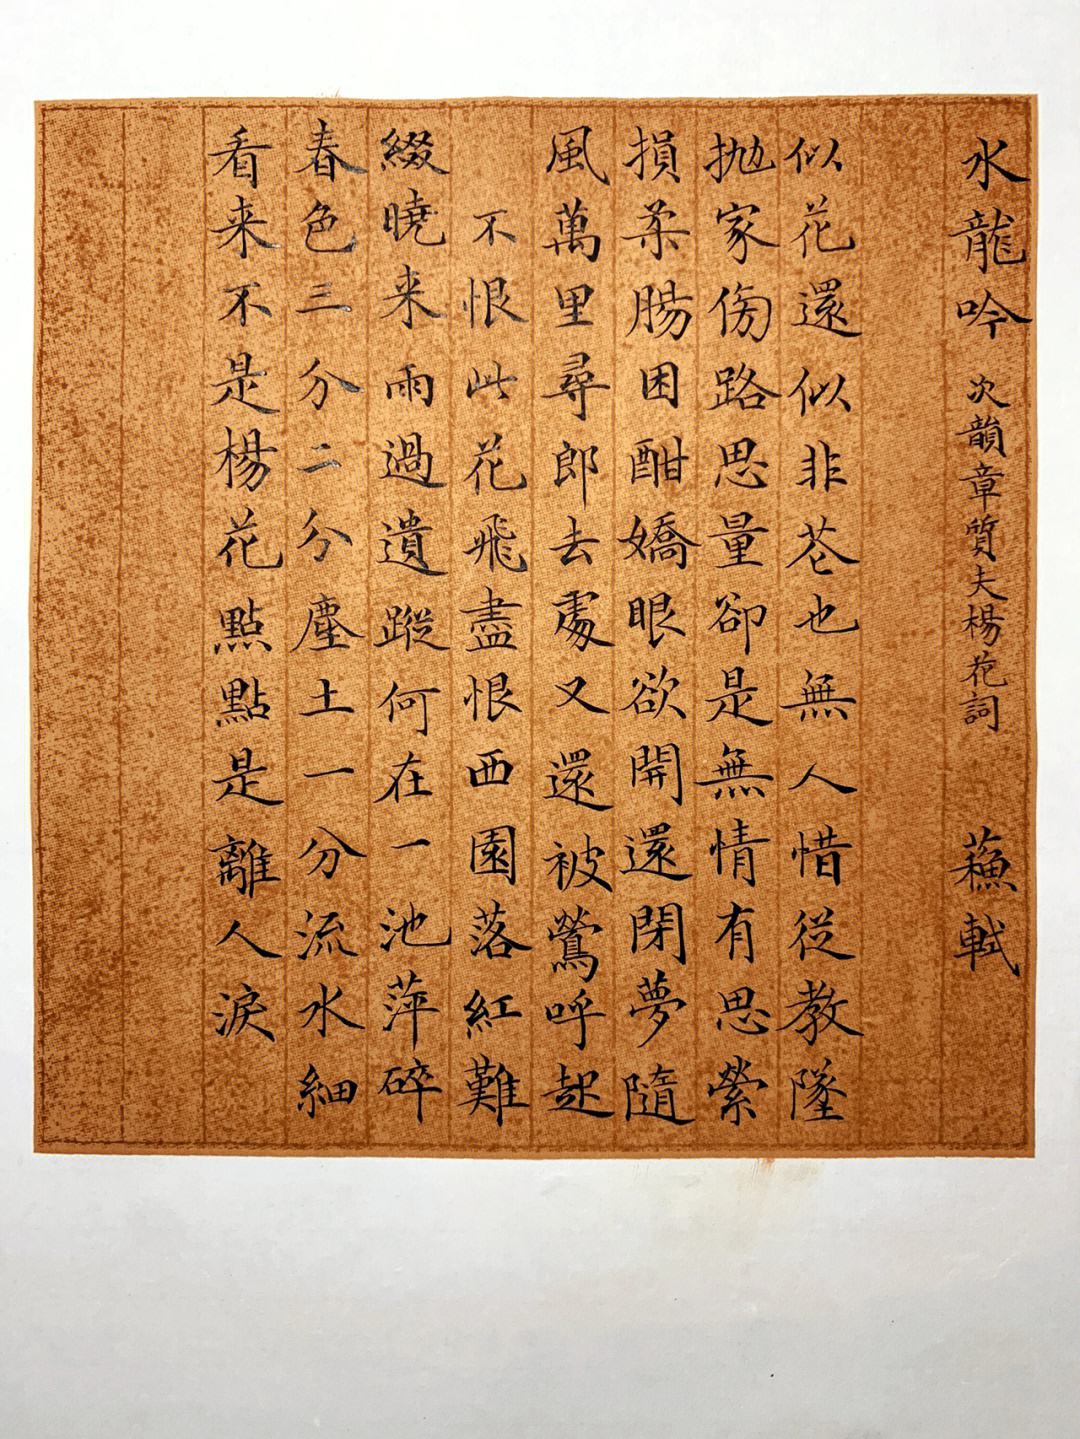 水龍吟 次韻章質夫楊花詞 蘓軾
似花還似非花也無人惜從教墜
抛家傍路思量卻是無情有思縈
損柔腸困酣嬌眼欲開還閉夢隨
風萬里尋郎去處又還被鶯呼起
不恨此花飛盡恨西園落紅難
綴曉来雨過遺蹤何在一池萍碎
春色三分二分塵土一分流水細
看来不是楊花點點是離人淚